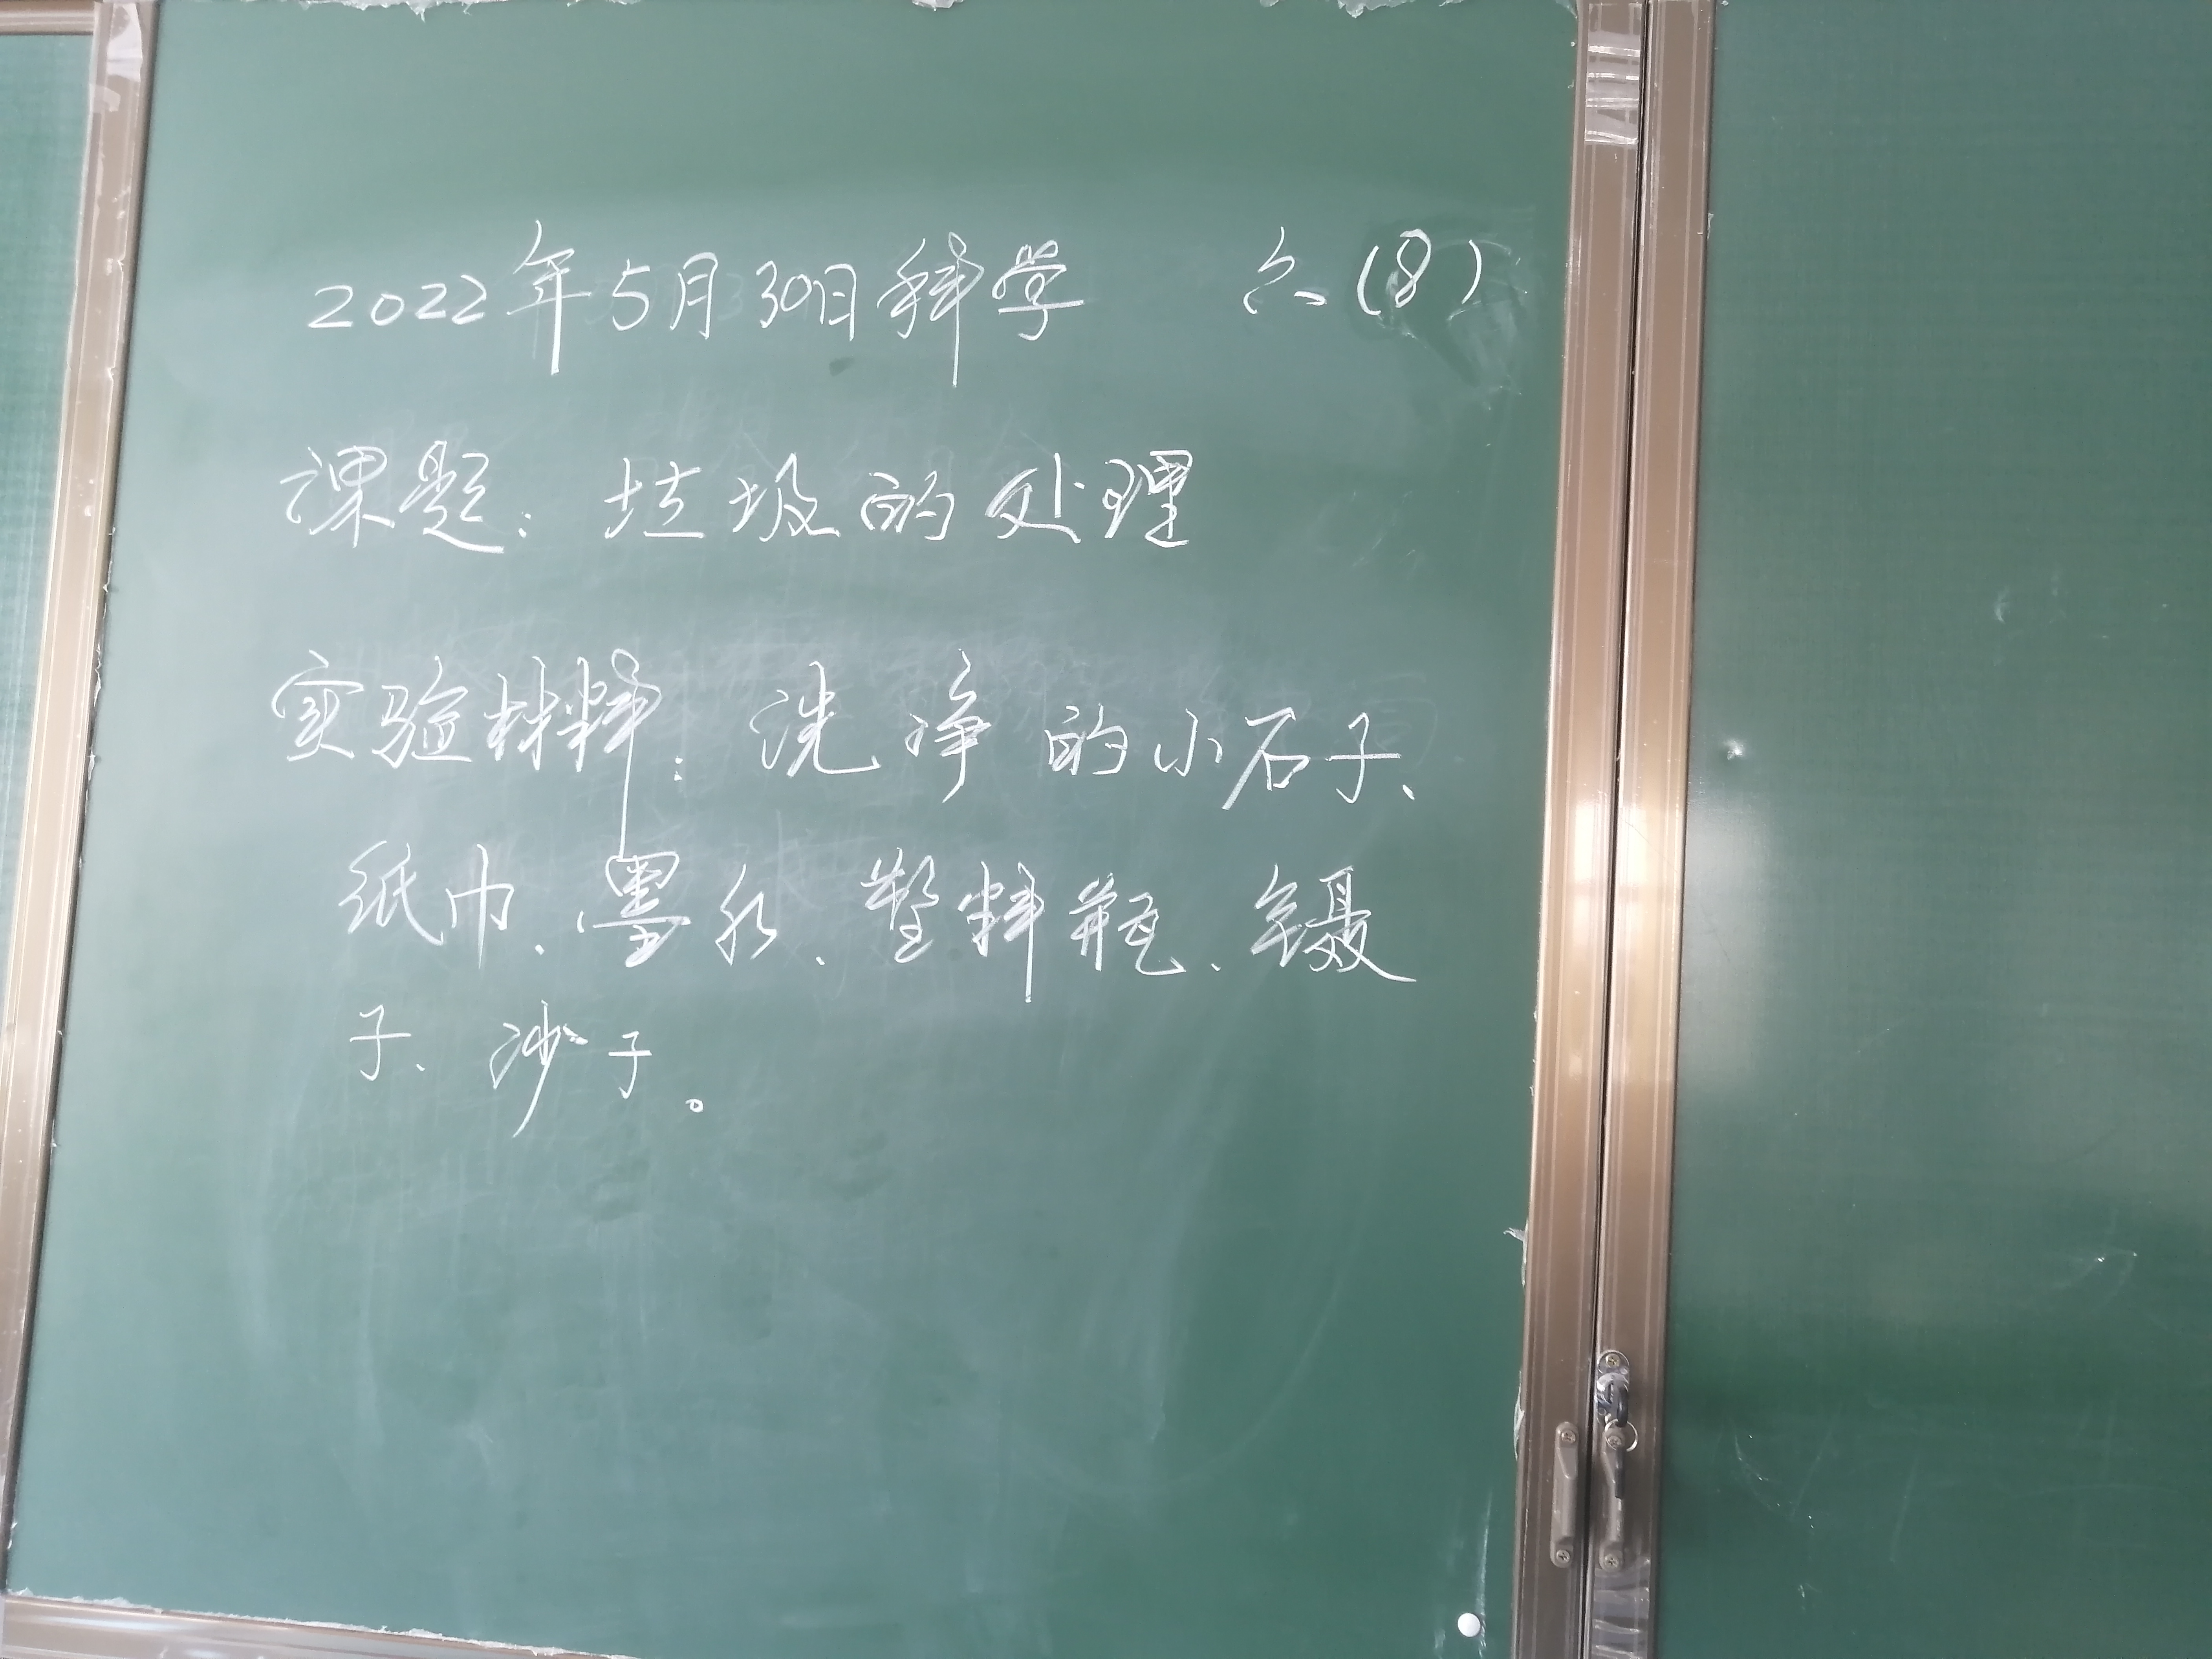 2022年5月30日科学 六(8)
课题：垃圾的处理
实验材料：洗净的小石子、
纸巾、墨水、塑料瓶、镊
子、沙子。